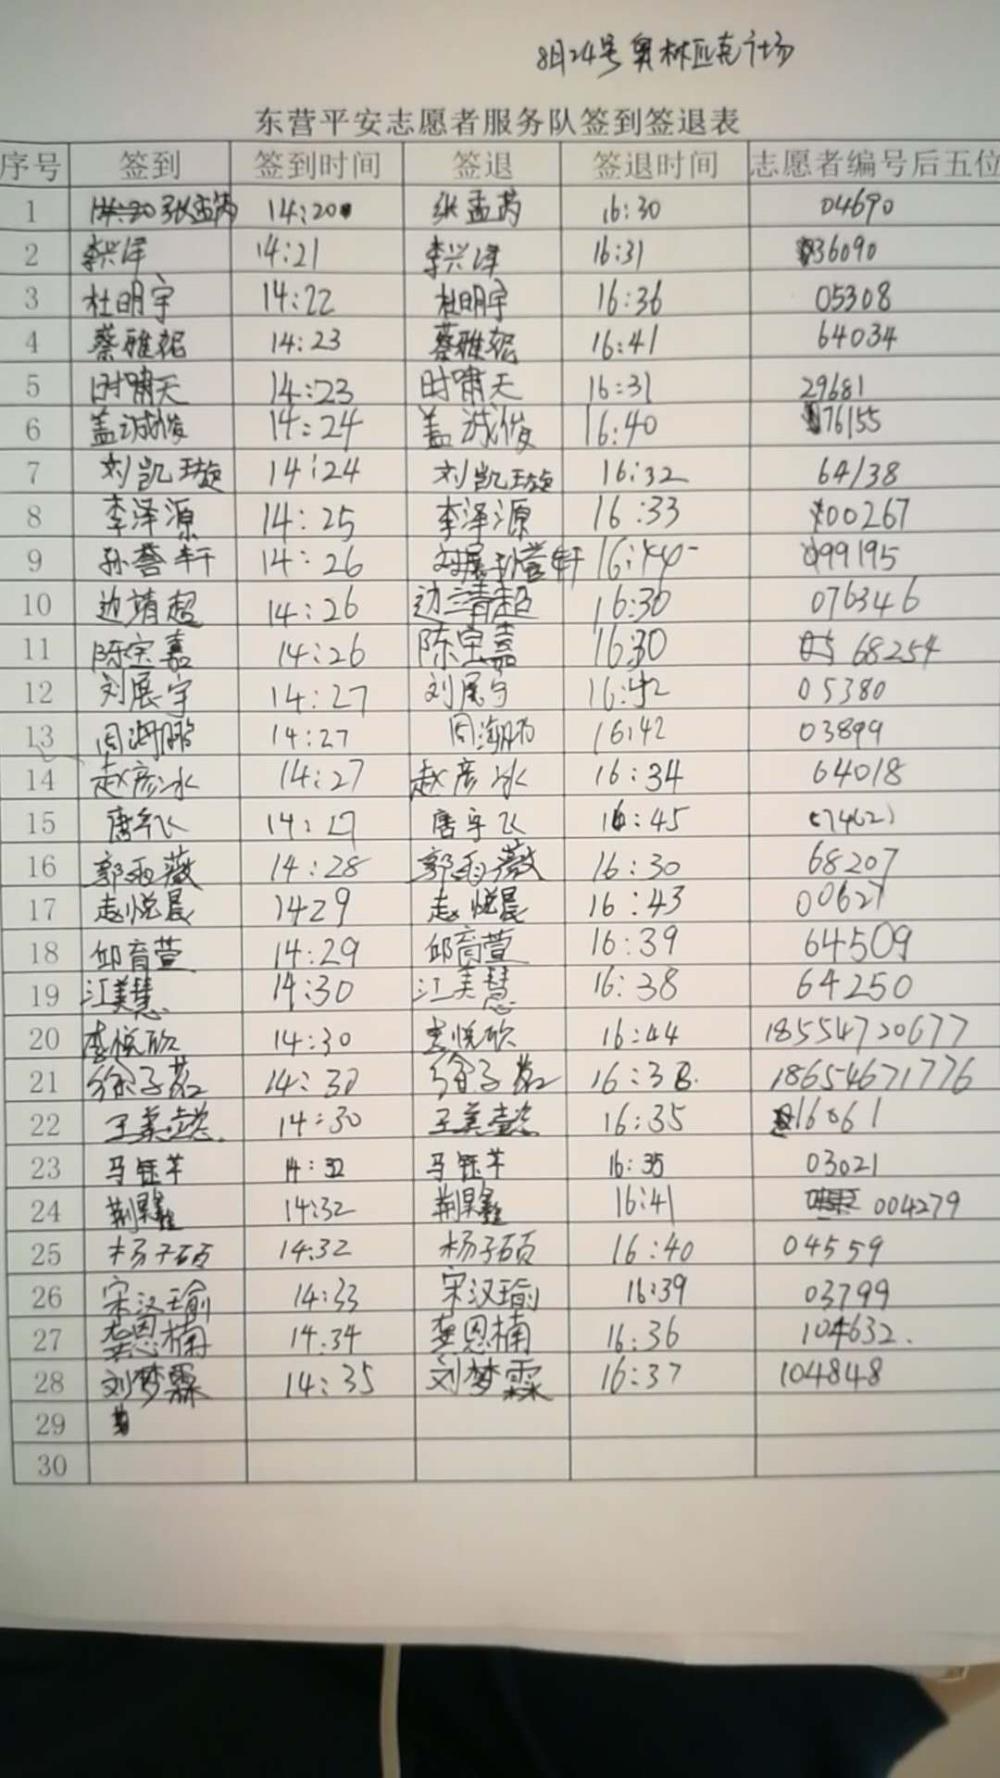 8月24号奥林匹克广场
东营平安志愿者服务队签到签退表
序号 签到 签到时间 签退 签退时间 志愿者编号后五位
1 张孟芮 14:20 张孟芮 16:30 04690
2 李兴泽 14:21 李兴泽 16:31 36090
3 杜明宇 14:22 杜明宇 16:36 05308
4 蔡雅妮 14:23 蔡雅妮 16:41 64034
5 时啸天 14:23 时啸天 16:31 29681
6 盖诚俊 14:24 盖诚俊 16:40 76155
7 刘凯璇 14:24 刘凯璇 16:32 64138
8 李泽源 14:25 李泽源 16:33 00267
9 孙誉轩 14:26 孙誉轩 99195
10 边靖超 14:26 边靖超 16:30 076346
11 陈宝嘉 14:26 陈宝嘉 1630 68254
12 刘展宇 14:27 刘展宇 16:42 05380
13 14:27 16:42 03899
14 赵彦冰 14:27 赵彦冰 16:34 64018
15 唐宇飞 14:27 唐宇飞 16:45
16 郭雨薇 14:28 郭雨薇 16:30 68207
17 赵悦晨 1429 赵悦晨 16:43 00627
18 邱育萱 14:29 邱育萱 16:39 64509
19 江美慧 14:30 江美慧 16:38 64250
20 李悦欣 14:30 李悦欣 16:44 18554720677
21 14:30 16:38. 18654671776
22 14:30 16:35 16061
23 马钰芊 14:32 马钰芊 16:35 03021
24 14:32 16:41 004279
25 杨子硕 14:32 杨子硕 16:40 04559
26 宋汉瑜 14:33 宋汉瑜 16:39 03799
27 龚恩楠 14:34 龚恩楠 16:36 104632.
28 刘梦霖 14:35 刘梦霖 16:37 104848
29
30